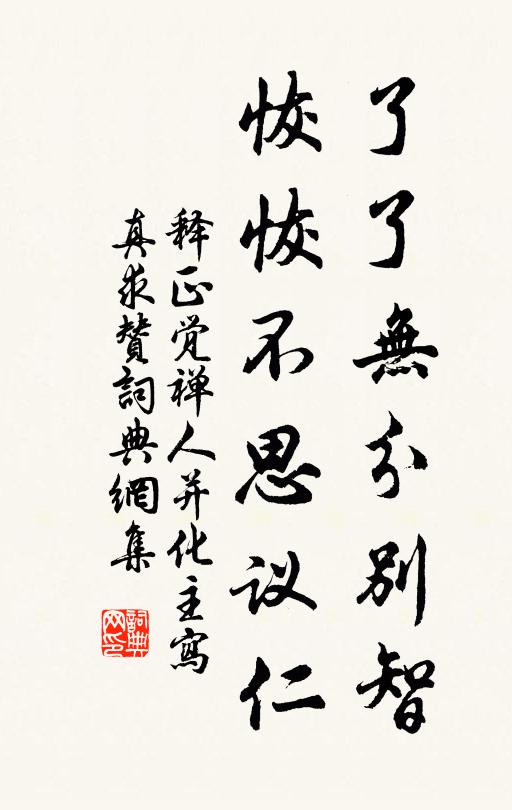 了了無分别智
恢恢不思议仁
释正觉禅人并化主寫
真求赞詞典網集
詞典网印